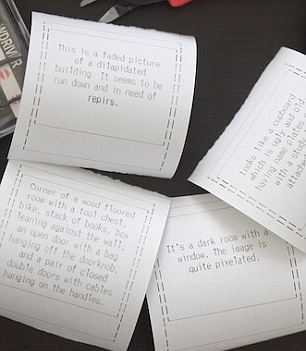 This is a faded picture
of a dilapidated
building. It seems to be
run down and in need of
repairs.
looks like a cupboard
which is ugly and
having name plates
with a
Corner of a wood floored
room with a tool chest,
bike, stack of books, box
leaning against the wall,
an open door with a bag
hanging of the doorknob,
and a pair of closed
double doors with cables
hanging on the handles.
It's a dark room with a
window. The image is
quite pixelated.